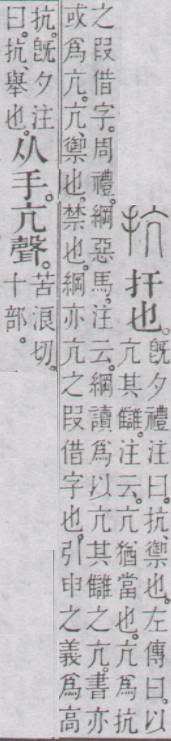 抗 扞也。
旣夕禮注曰。抗、禦也。左傳曰。以
亢其讎。注云。亢猶當也。亢爲抗
之叚借字。周禮。綱惡馬。注云。綱讀爲以亢其讎之亢。書亦
或爲亢。亢、禦也。禁也。綱亦亢之叚借字也。引申之義爲高
抗。旣夕注
曰。抗、舉也。
从手。亢聲。
苦浪切。
十部。